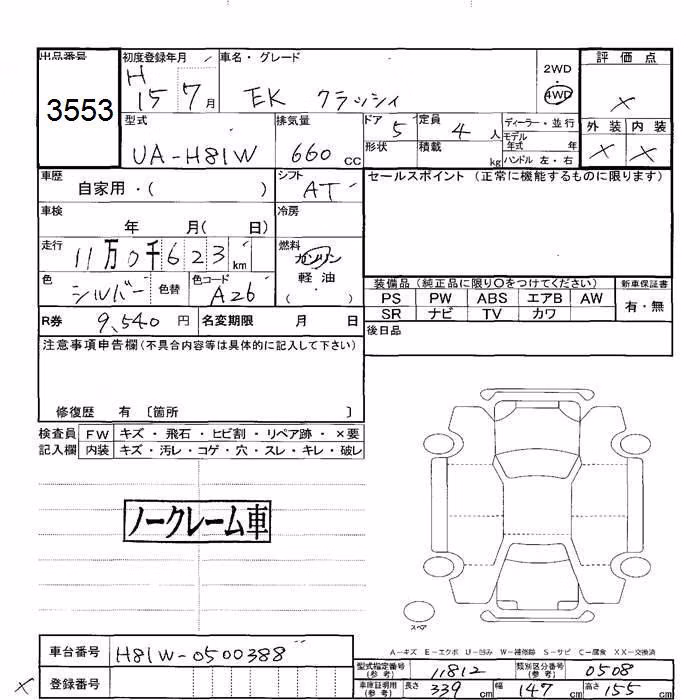 出品番号 初度登録年月 車名・グレード 評価点
3553 H 15 7月 EK クラッシィ 2WD 4WD ×
型式 排気量 ドア 定員 ディーラー・並行 外装 内装
UA-H81W 660 CC 5 4人 モデル年式 年 × ×
形状 積載 kg ハンドル 左・右
車歴 シフト セールスポイント (正常に機能するものに限ります)
自家用・( ) AT
車検 冷房
年 月( 日)
走行 燃料
11万0千623 km ガソリン
軽・油
( )
色 色コード
シルバー 色替 A26
装備品 (純正品に限り○をつけてください) 新車保証書
PS PW ABS エアB AW 有・無
SR ナビ TV カワ
R券 9,540 円 名変期限 月 日
後日品
注意事項申告欄(不具合内容等は具体的に記入して下さい)
修復歴 有 〔箇所 〕
検査員 FW キズ・飛石・ヒビ割・リペア跡・×要
記入欄 内装 キズ・汚レ・コゲ・穴・スレ・キレ・破レ
ノークレーム車
スペア
A-キズ E-エクボ U-凹み W-補修跡 S-サビ C-腐食 XX-交換済
車台番号 H81W-0500388
型式指定番号(参考) 11812 類別区分番号(参考) 0508
× 登録番号
車庫証明用(参考) 長さ 339 cm 幅 147 cm 高さ 155 cm